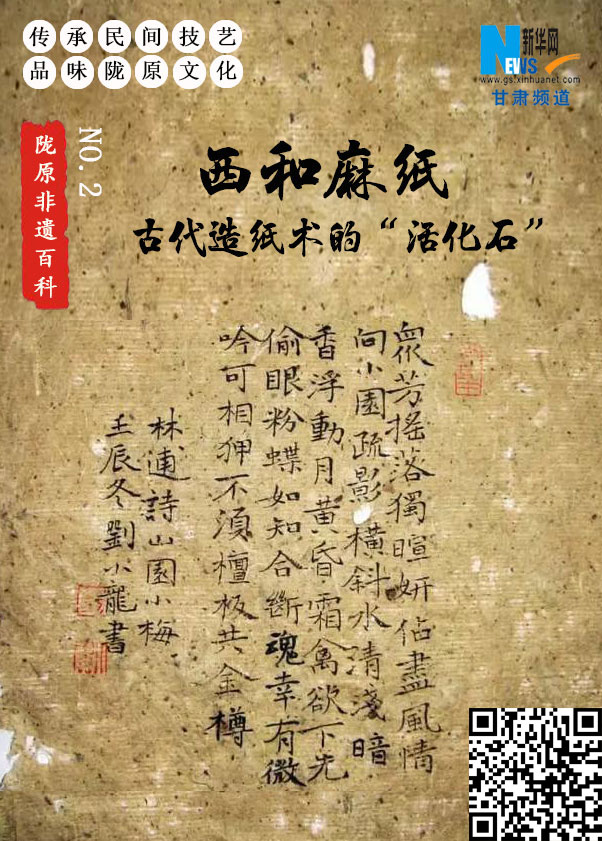 传承民间技艺
品味陇原文化
新华网
NEWS
www.gs.xinhuanet.com
甘肃频道
陇原非遗百科
NO.2
西和麻纸
古代造纸术的“活化石”
眾芳搖落獨暄妍佔盡風情
向小園疏影橫斜水清淺暗
香浮動月黄昏霜禽欲下先
偷眼粉蝶如知合斷魂幸有微
吟可相狎不須檀板共金樽
林逋詩山園小梅
壬辰冬劉小龍書